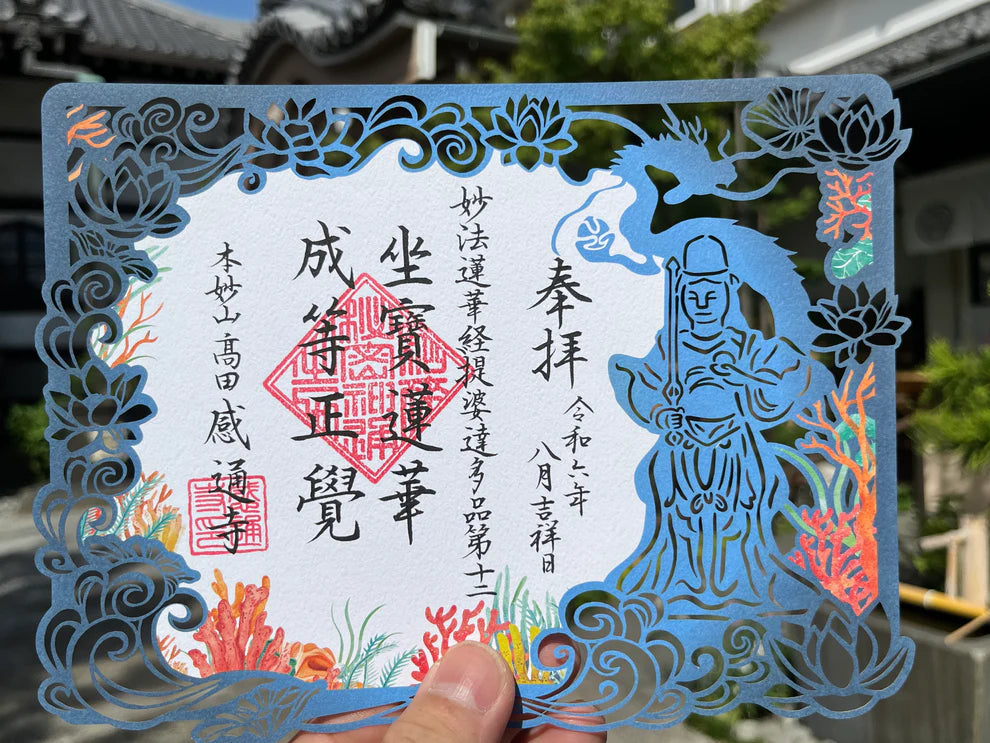 奉拝
令和六年
八月吉祥日
妙法蓮華経提婆達多品第十二
坐寶蓮華
成等正覺
本妙山高田感通寺